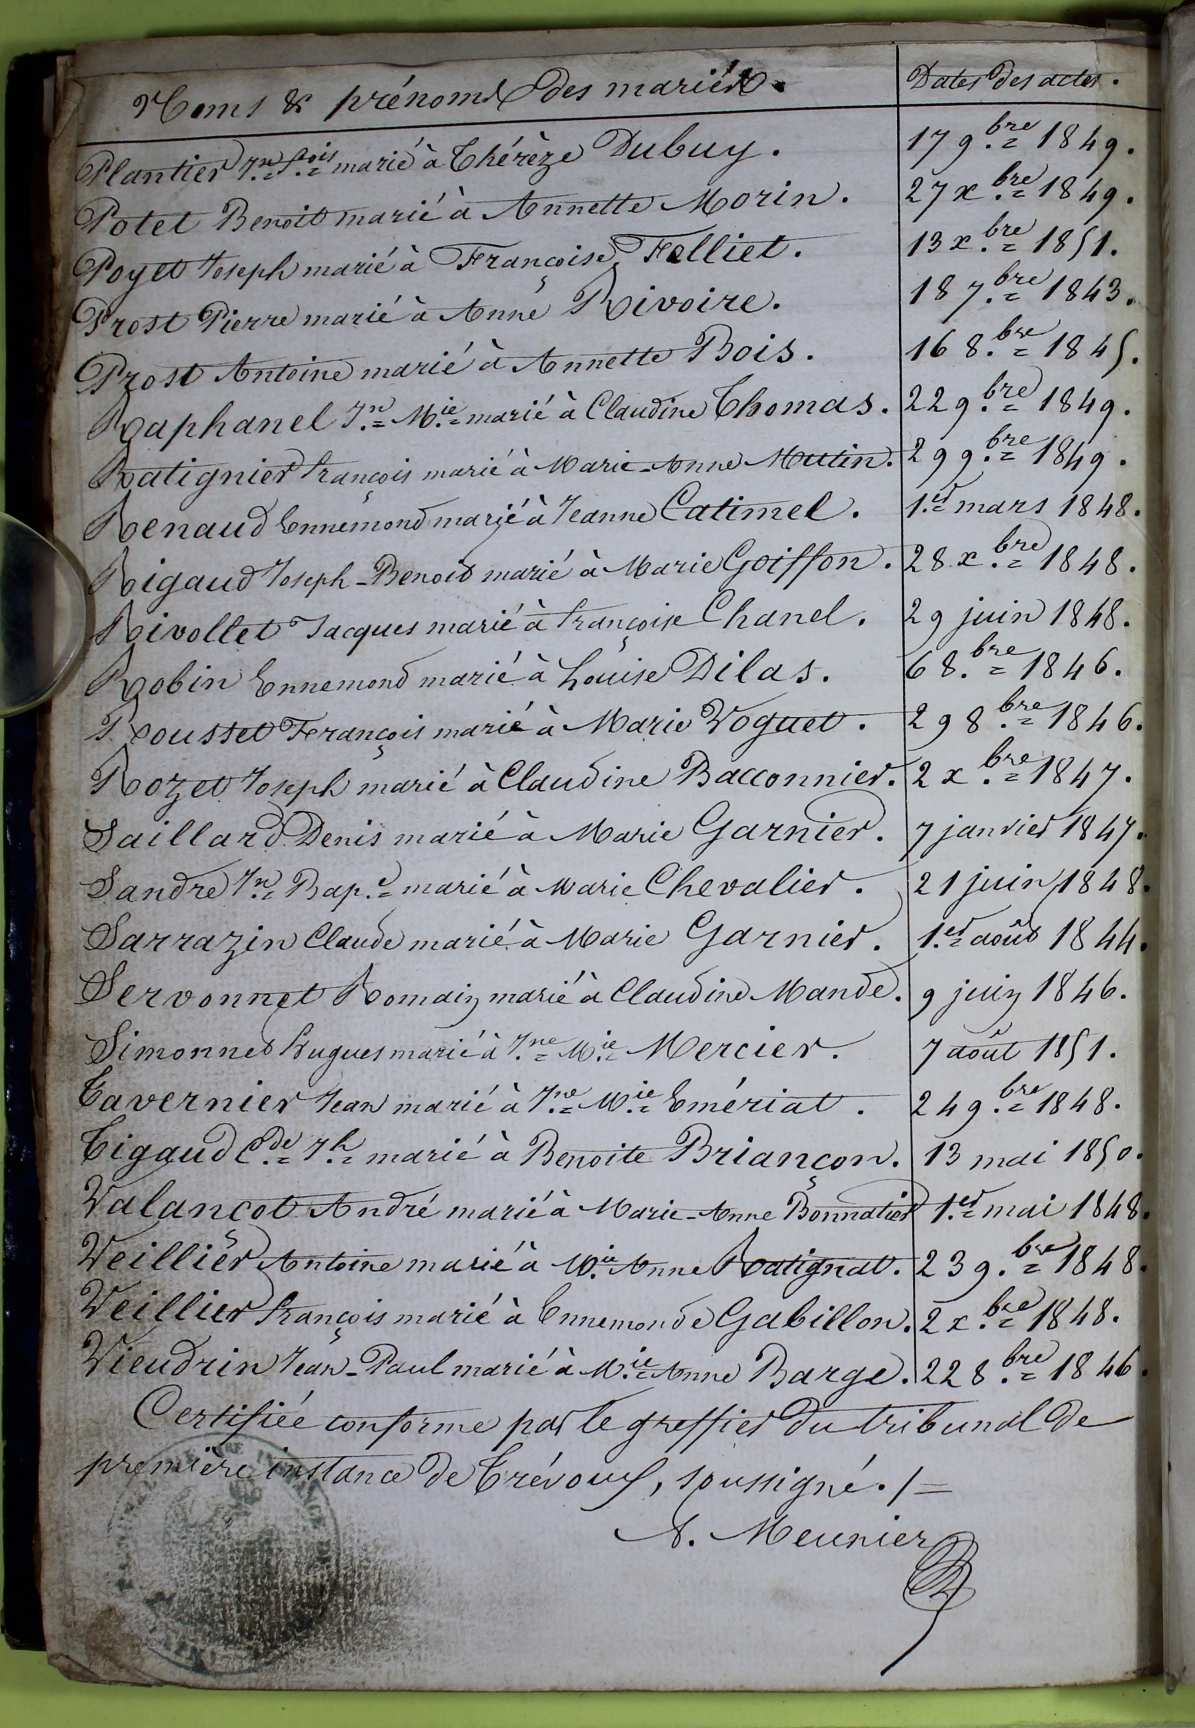 Noms & prénoms des mariés. Dates des actes.
Plantier Jn. fcois marié à Thérèze Dubuy. 17 9.bre 1849.
Potet Benoit marié à Annette Morin. 27 x.bre 1849.
Poyet Joseph marié à Françoise Felliet. 13 x.bre 1851.
Prost Pierre marié à Anne Rivoire. 18 7.bre 1843.
Prost Antoine marié à Annette Bois. 16 8.bre 1845.
Raphanel Jn. Mie. marié à Claudine Thomas. 22 9.bre 1849.
Ratignier françois marié à Marie-Anne Mutin. 29 9.bre 1849.
Renaud Ennemond marié à Jeanne Catimel. 1.er mars 1848.
Rigaud Joseph-Benoit marié à Marie Goiffon. 28 x.bre 1848.
Rivollet Jacques marié à françoise Chanel. 29 juin 1848.
Robin Ennemond marié à Louise Dilas. 6 8.bre 1846.
Rousset François marié à Marie Voguet. 29 8.bre 1846.
Rozet Joseph marié à Claudine Baconnier. 2 x.bre 1847.
Saillard Denis marié à Marie Garnier. 7 janvier 1847.
Sandre Jn. Bap.e marié à Marie Chevalier. 21 juin 1848.
Sarrazin Claude marié à Marie Garnier. 1.er août 1844.
Servonnet Romain marié à Claudine Mande. 9 juin 1846.
Simonnet hugues marié à Jne. Mie. Mercier. 7 août 1851.
Tavernier Jean marié à Jne. Mie. Emériat. 24 9.bre 1848.
Tigaud Cde. Jh. marié à Benoite Briançon. 13 mai 1850.
Valançot André marié à Marie-Anne Bonnatier 1.er mai 1848.
Veillier Antoine marié à Mie. Anne Ratignat. 23 9.bre 1848.
Veillier françois marié à Ennemonde Gabillon. 2 x.bre 1848.
Vieudrin Jean-Paul marié à Mie. Anne Barge. 22 8.bre 1846.
Certifiée conforme par le greffier du tribunal de
première instance de Trévoux, soussigné. /=
A. Meunier